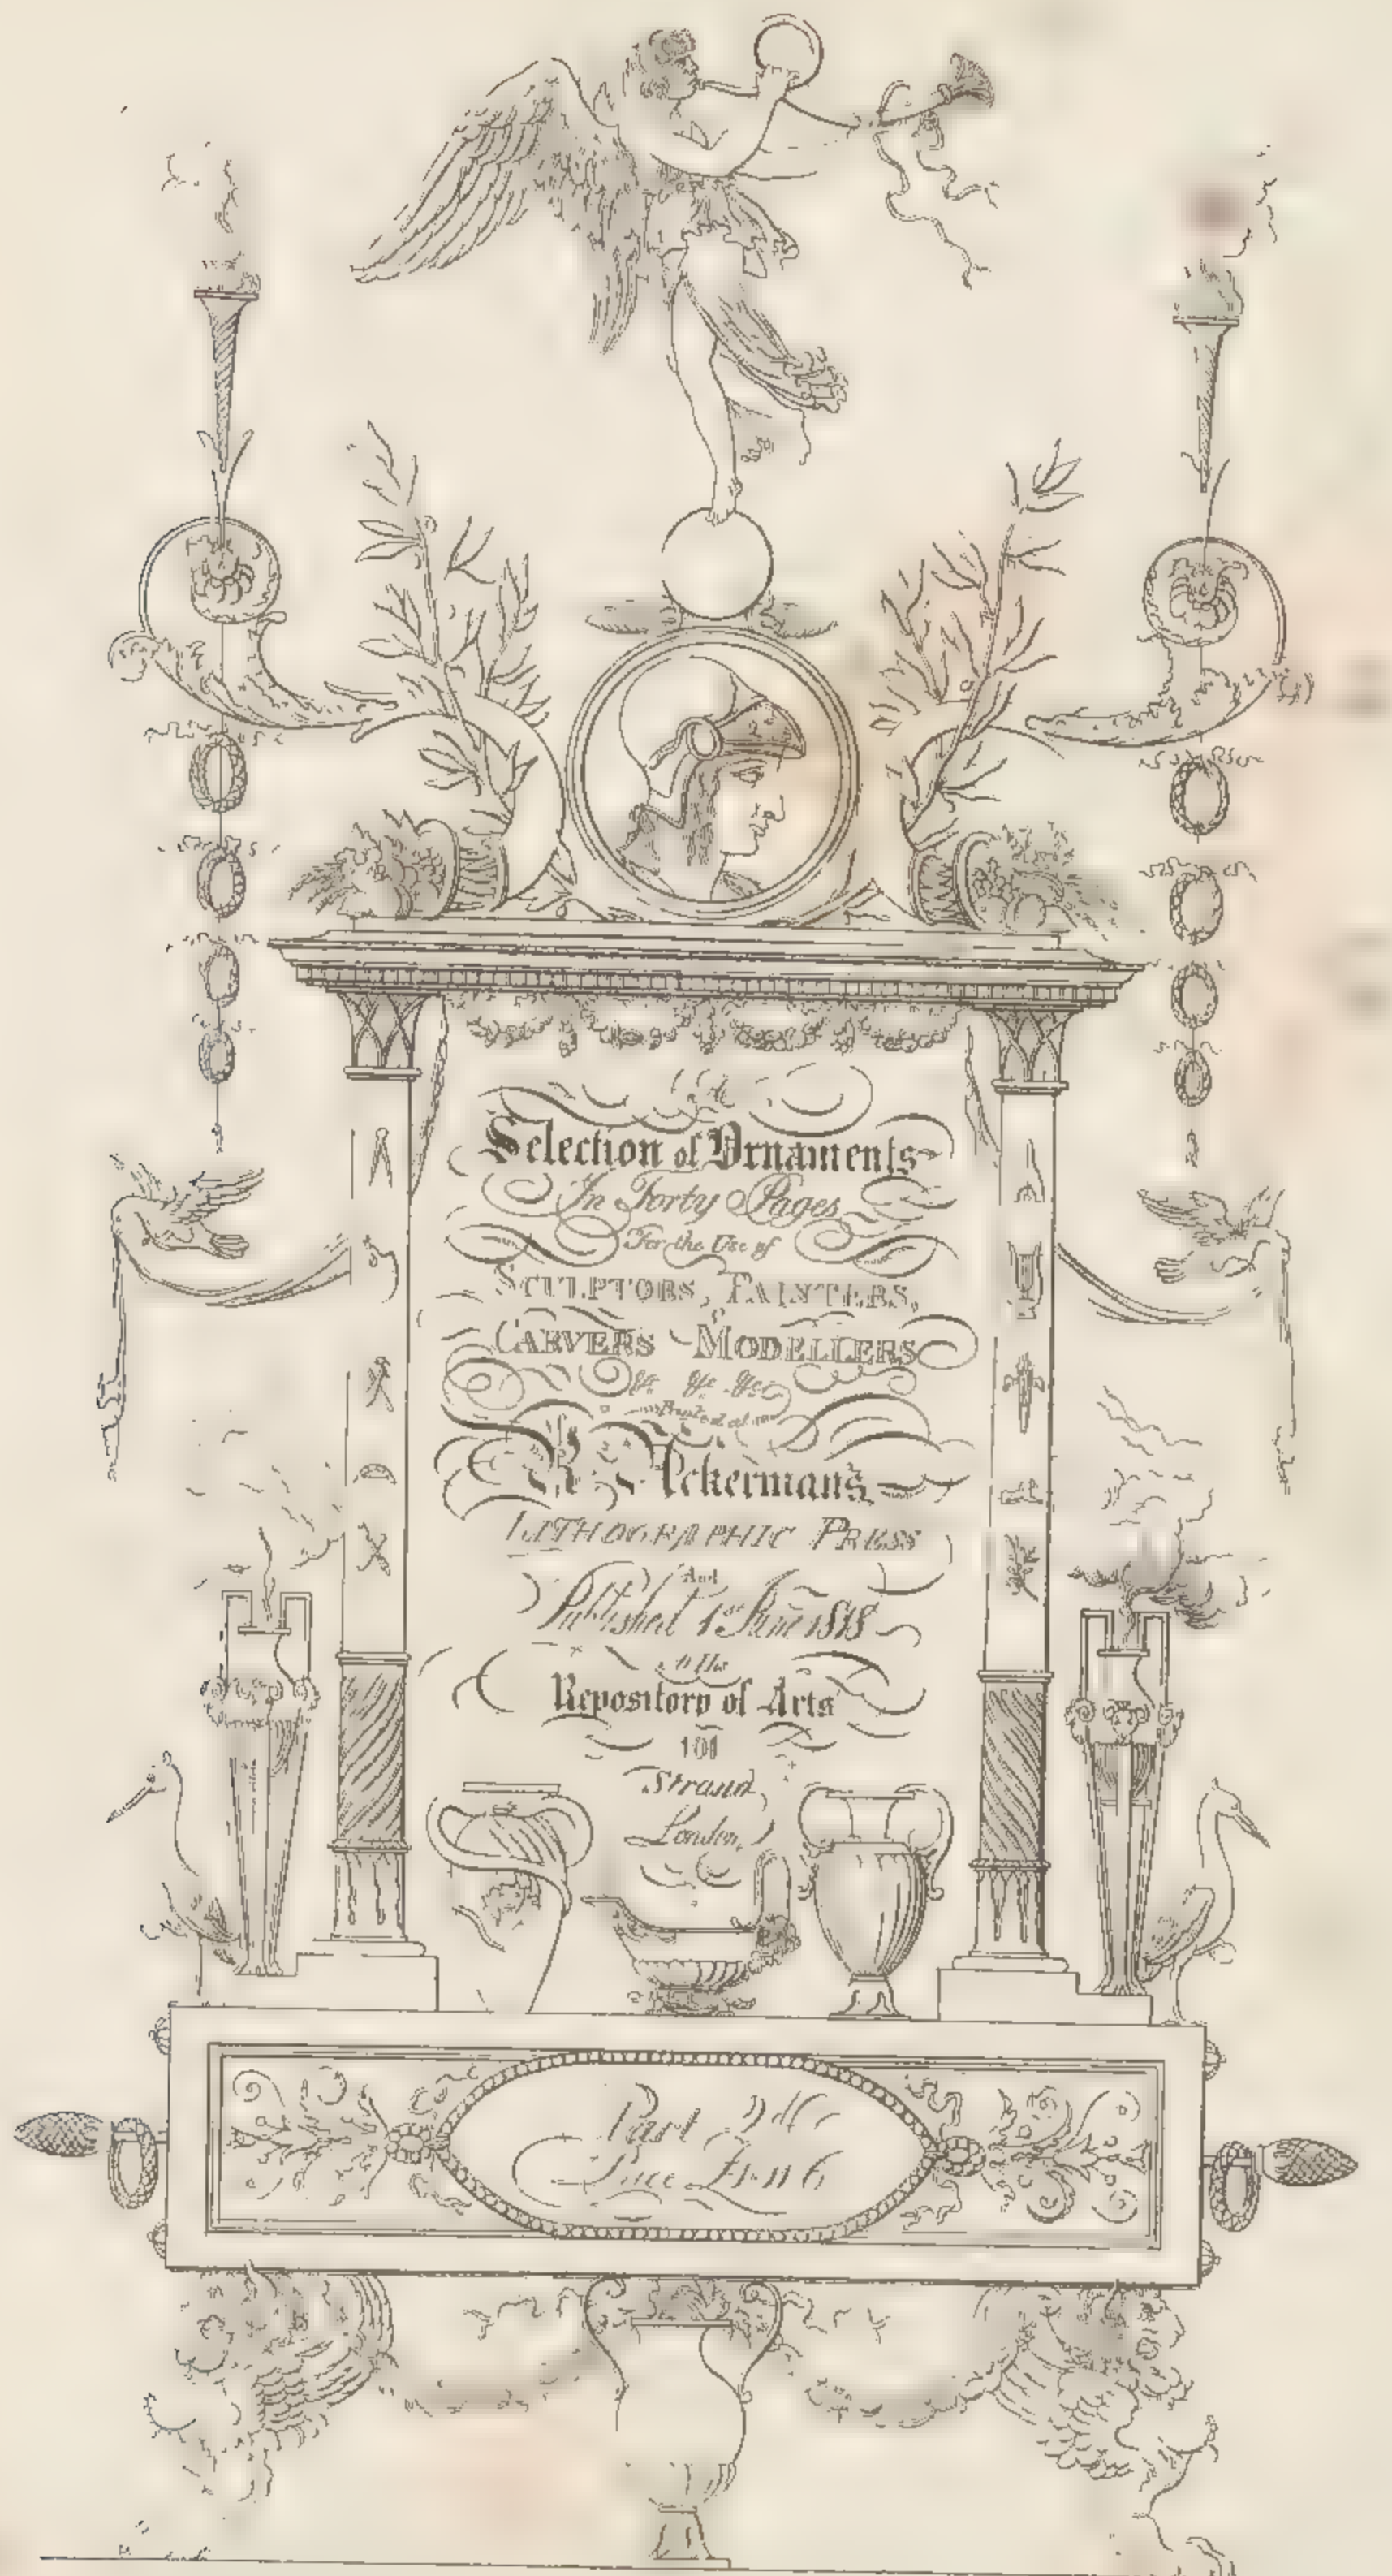 A
Selection of Ornaments
In Forty Pages
For the Use of
SCULPTORS, PAINTERS,
CARVERS MODELLERS
&c &c &c
Printed at
R. Ackermans
LITHOGRAPHIC PRESS
And
Published 1st June 1818
at the
Repository of Arts
101
Strand,
London,
Part 2d
Price